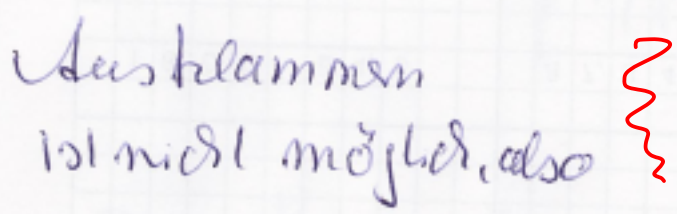 Ausklammern
ist nicht möglich, also